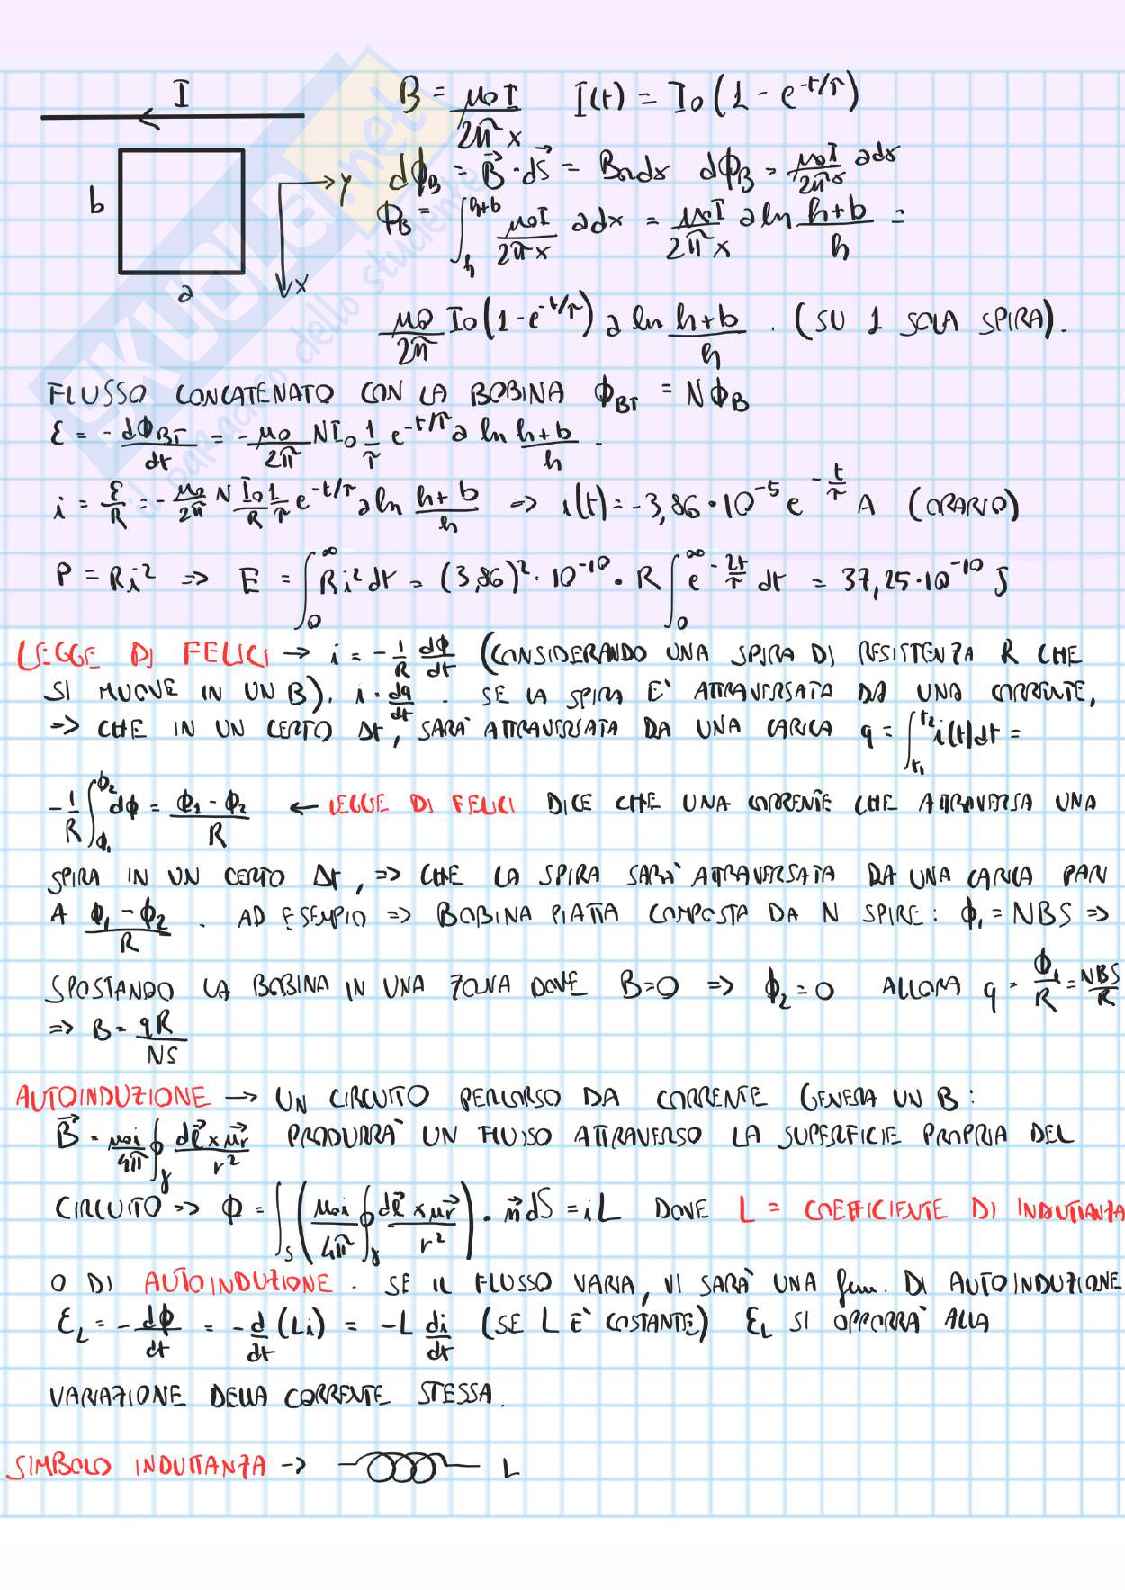 I
b
a
y
x
B = μ₀I / 2πx   I(t) = I₀(1 - e^(-t/τ))
dϕ_B = B⃗ · dS⃗ = Badx   dϕ_B = μ₀I / 2πx adx
ϕ_B = ∫_h^(h+b) μ₀I / 2πx adx = μ₀I / 2πx a ln (h+b) / h =
μ₀ / 2π I₀(1 - e^(-t/τ)) a ln (h+b) / h . (SU 1 SOLA SPIRA).
FLUSSO CONCATENATO CON LA BOBINA ϕ_BT = Nϕ_B
ℰ = - dϕ_BT / dt = - μ₀ / 2π NI₀ 1/τ e^(-t/τ) a ln (h+b) / h .
i = ℰ/R = - μ₀ / 2π N I₀/R 1/τ e^(-t/τ) a ln (h+b) / h => i(t) = -3,86 · 10⁻⁵ e^(-t/τ) A (ORARIO)
P = Ri² => E = ∫_0^∞ Ri² dt = (3,86)² · 10⁻¹⁰ · R ∫_0^∞ e^(-2t/τ) dt = 37,25 · 10⁻¹⁰ J
LEGGE DI FELICI → i = - 1/R dϕ/dt (CONSIDERANDO UNA SPIRA DI RESISTENZA R CHE
SI MUOVE IN UN B). i = dq/dt . SE LA SPIRA E' ATTRAVERSATA DA UNA CORRENTE,
=> CHE IN UN CERTO Δt, SARA' ATTRAVERSATA DA UNA CARICA q = ∫_t₁^t₂ i(t)dt =
- 1/R ∫_ϕ₁^ϕ₂ dϕ = (ϕ₁ - ϕ₂) / R ← LEGGE DI FELICI DICE CHE UNA CORRENTE CHE ATTRAVERSA UNA
SPIRA IN UN CERTO Δt, => CHE LA SPIRA SARA' ATTRAVERSATA DA UNA CARICA PARI
A (ϕ₁ - ϕ₂) / R . AD ESEMPIO => BOBINA PIATTA COMPOSTA DA N SPIRE: ϕ₁ = NBS =>
SPOSTANDO LA BOBINA IN UNA ZONA DOVE B=0 => ϕ₂ = 0 ALLORA q = ϕ₁/R = NBS/R
=> B = qR / NS
AUTOINDUZIONE → UN CIRCUITO PERCORSO DA CORRENTE GENERA UN B:
B⃗ = μ₀i / 4π ∮_γ dl⃗ x u⃗r / r² PRODURRA' UN FLUSSO ATTRAVERSO LA SUPERFICIE PROPRIA DEL
CIRCUITO => ϕ = ∫_S (μ₀i / 4π ∮_γ dl⃗ x u⃗r / r²) · n⃗ dS = iL DOVE L = COEFFICIENTE DI INDUTTANZA
O DI AUTOINDUZIONE. SE IL FLUSSO VARIA, VI SARA' UNA fem. DI AUTOINDUZIONE
ℰ_L = - dϕ/dt = - d/dt (Li) = -L di/dt (SE L E' COSTANTE) ℰ_L SI OPPORRA' ALLA
VARIAZIONE DELLA CORRENTE STESSA.
SIMBOLO INDUTTANZA → L